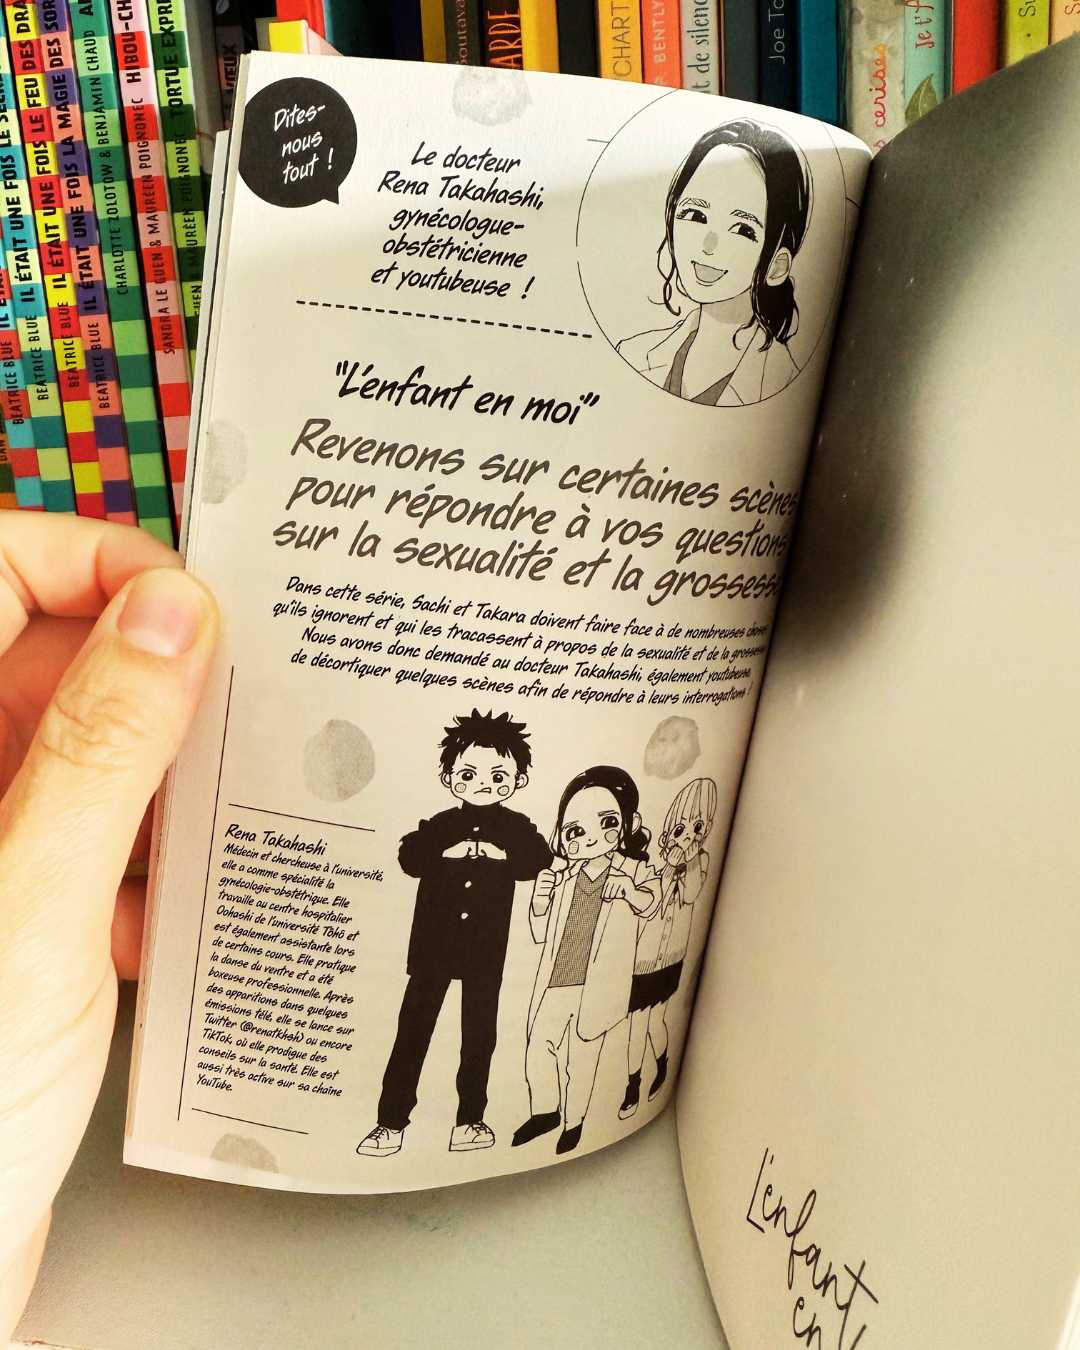 Dites-
nous
tout !
Le docteur
Rena Takahashi,
gynécologue-
obstétricienne
et youtubeuse !
"L'enfant en moi"
Revenons sur certaines scènes
pour répondre à vos questions
sur la sexualité et la grossesse
Dans cette série, Sachi et Takara doivent faire face à de nombreuses choses
qu'ils ignorent et qui les tracassent à propos de la sexualité et de la grossesse.
Nous avons donc demandé au docteur Takahashi, également youtubeuse,
de décortiquer quelques scènes afin de répondre à leurs interrogations !
Rena Takahashi
Médecin et chercheuse à l'université,
elle a comme spécialité la
gynécologie-obstétrique. Elle
travaille au centre hospitalier
Oohashi de l'université Tôhô et
est également assistante lors
de certains cours. Elle pratique
la danse du ventre et a été
boxeuse professionnelle. Après
des apparitions dans quelques
émissions télé, elle se lance sur
Twitter (@renatkhsh) ou encore
TikTok, où elle prodigue des
conseils sur la santé. Elle est
aussi très active sur sa chaîne
YouTube.
L'enfant
en
BEATRICE BLUE
BEATRICE BLUE IL ÉTAIT UNE FOIS LE
BEATRICE BLUE IL ÉTAIT UNE FOIS LE FEU DES
BEATRICE BLUE IL ÉTAIT UNE FOIS LA MAGIE DES
CHARLOTTE ZOLOTOW & BENJAMIN CHAUD
SANDRA LE GUEN & MAUREEN POIGNONEC HIBOU-CH
MAUREEN POIGNONEC TORTUE EXPRE
CHART
BENTLY
t de silence
Joe To
cerises
Je t'